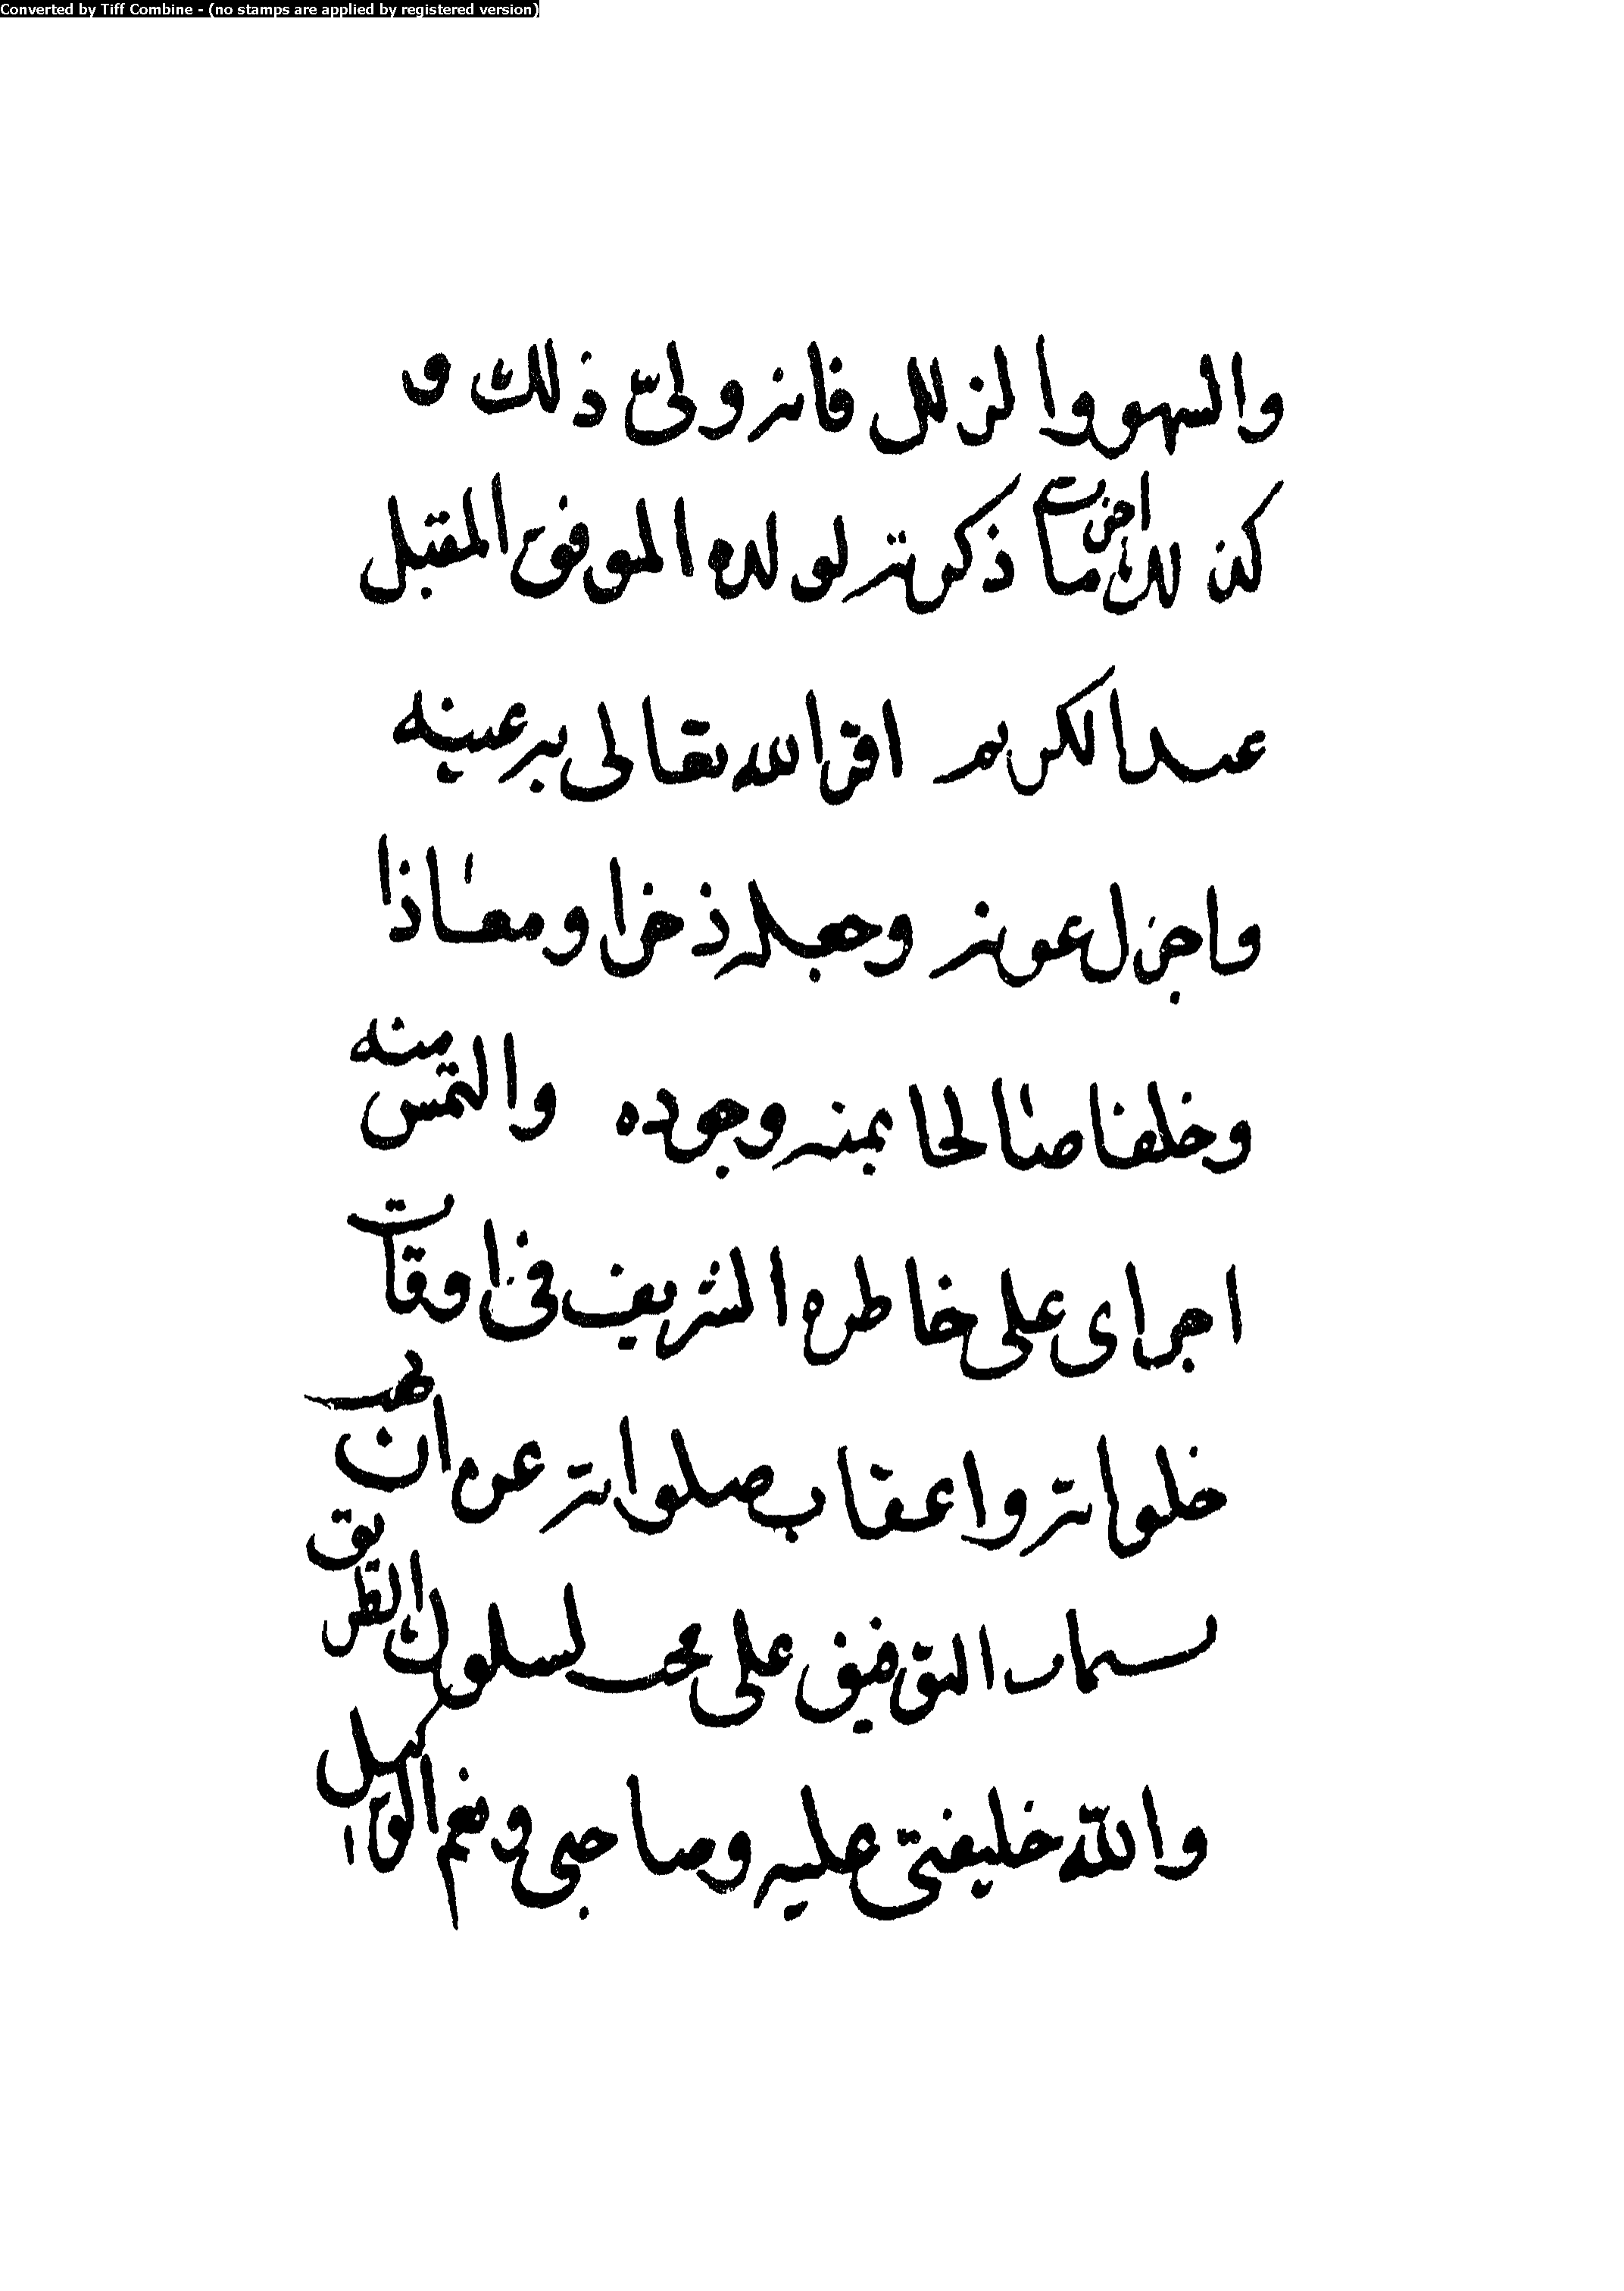 Converted by Tiff Combine - (no stamps are applied by registered version)
والسهو والزلل فانه ولي ذلك و
كذلك اجزت ما ذكرته لولده الموفق المقبل
عبدالكريم اقر الله تعالى به عينه
واجزل عونه وجعله ذخرا ومعاذا
وخلفا صالحا بمنه وجوده والتمس منه
اجراى على خاطره الشريف في اوقات
خلواته واعقاب صلواته عن ان
التوفيق على لسلوك الطريق
والله خليفتي عليه وصاحبي ونعم